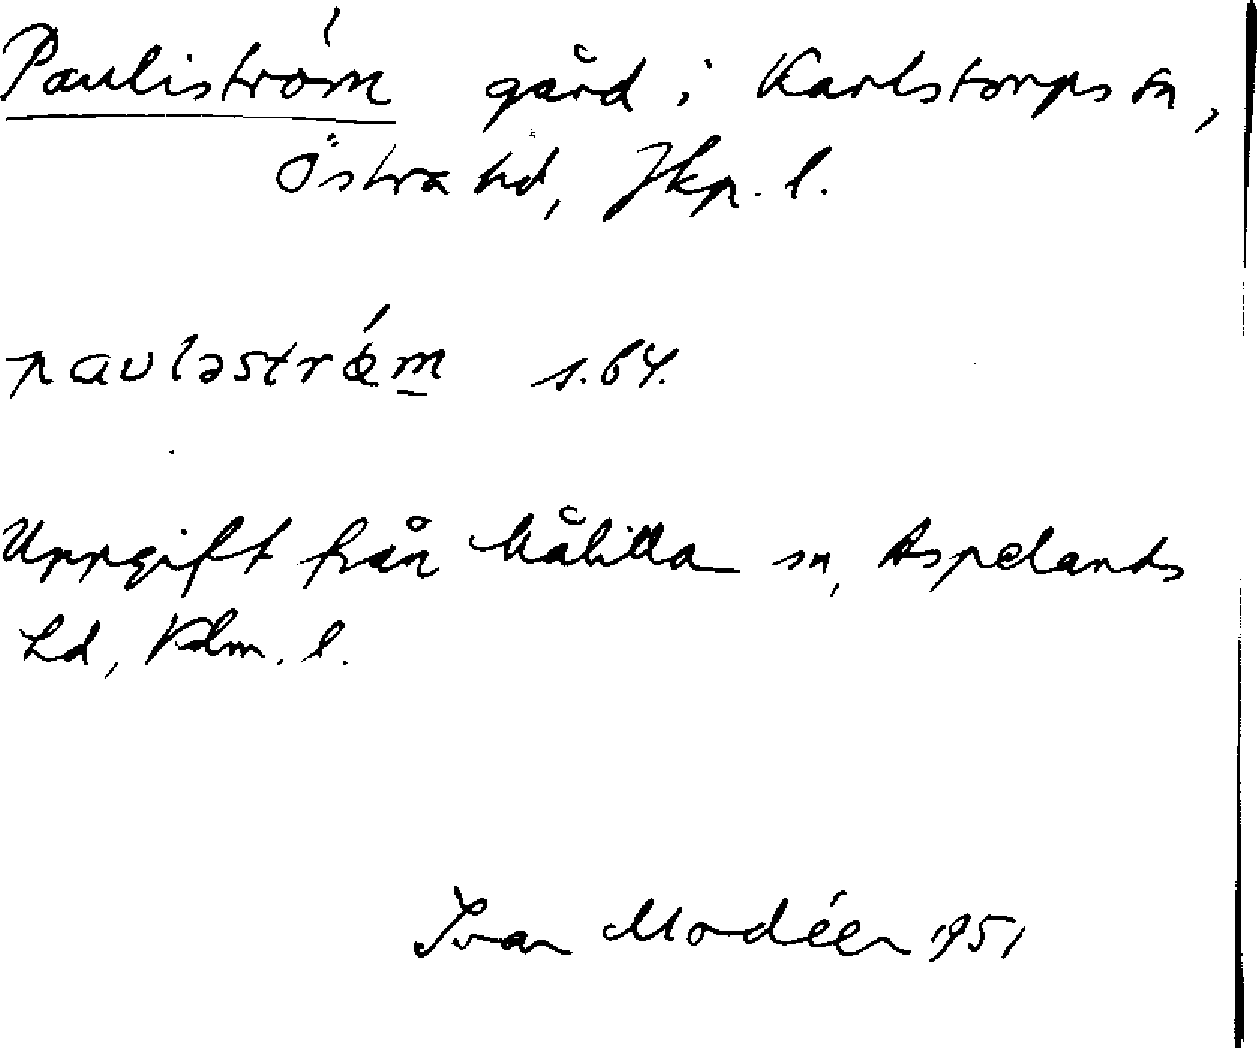 Pauliström gård i Karlstorps sn,
Östra hd, Jkp. l.
pauləstrǿm s. 64.
Uppgift från Målilla sn, Aspelands
hd, Klm. l.
Ivar Modéer 1951